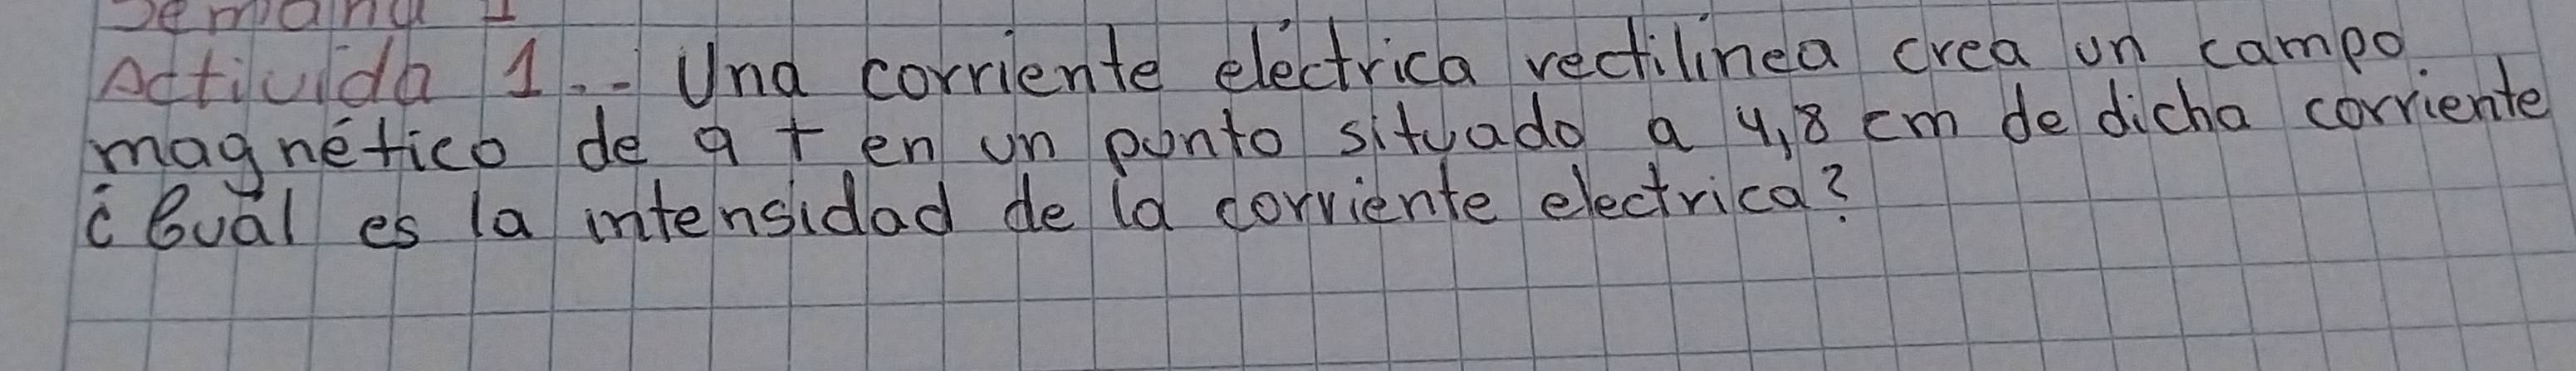 Semana 1
Activida 1.- Una corriente eléctrica rectilínea crea un campo
magnético de 9 t en un punto situado a 4,8 cm de dicha corriente
¿Cuál es la intensidad de la corriente electrica?